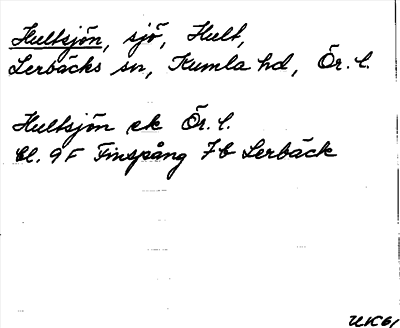 Hultsjön, sjö, Hult,
Lerbäcks sn, Kumla hd, Ör. l.
Hultsjön ek Ör. l.
Bl. 9 F Finspång 7b Lerbäck
UK61